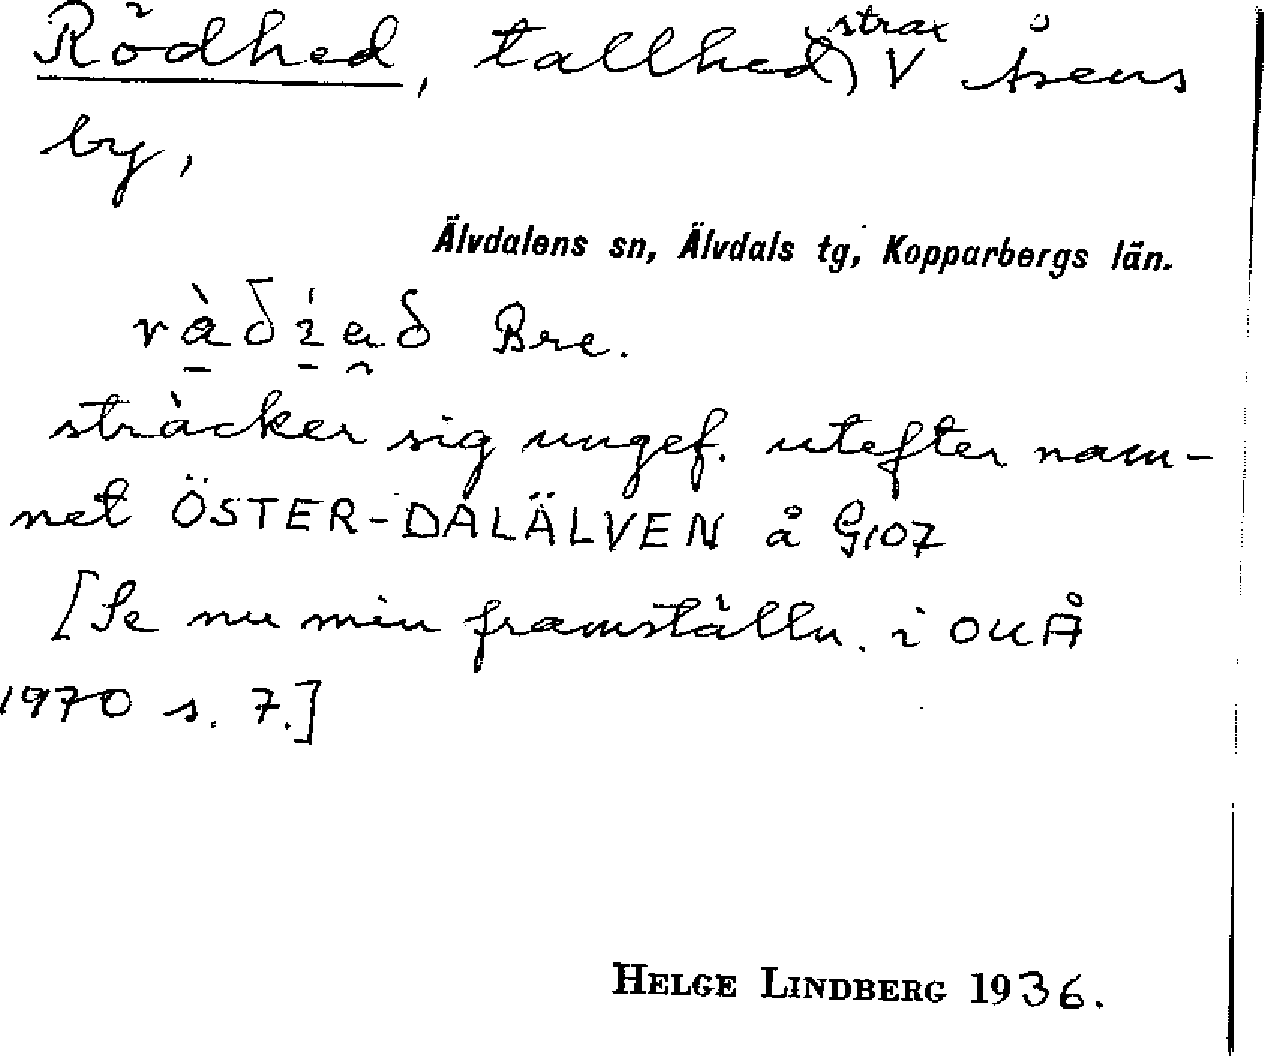 Rödhed, tallhed, strax V Åsens
by,
Älvdalens sn, Älvdals tg, Kopparbergs län.
Bre.
sträcker sig ungef. utefter nam-
net ÖSTER-DALÄLVEN å G107
[Se nu min framställn. i OUÅ
1970 s. 7.]
HELGE LINDBERG 1936.